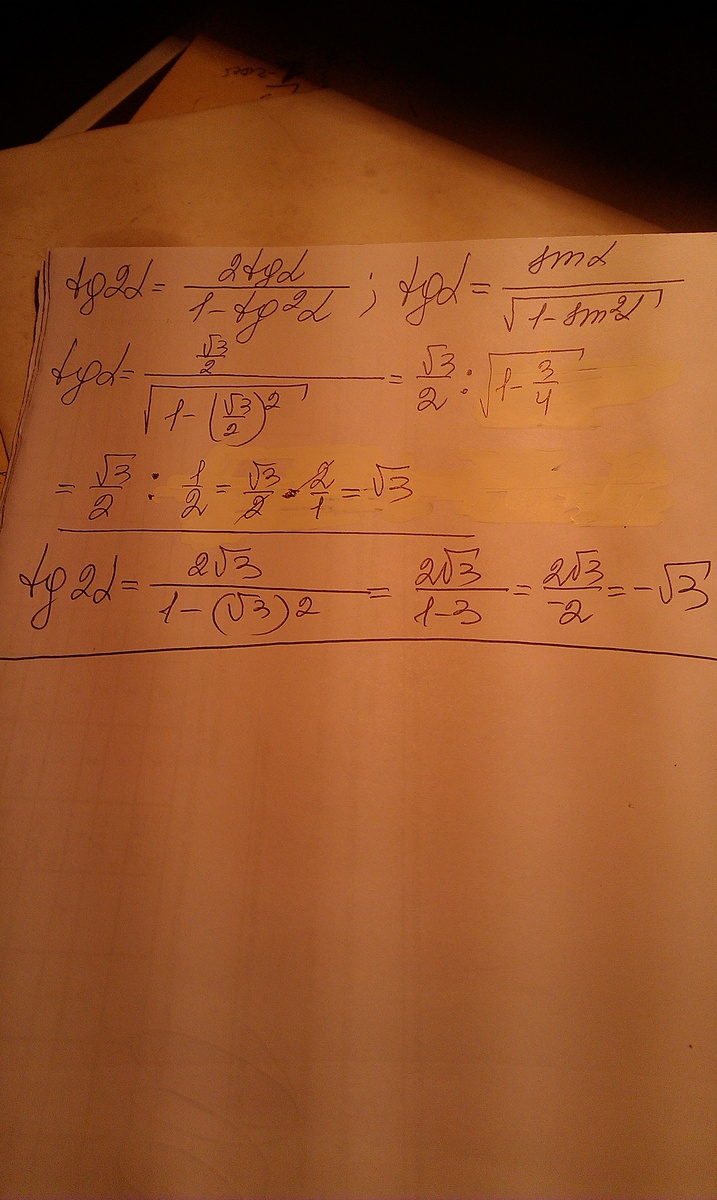 tg2α = 2tgα / (1 - tg²α) ; tgα = sinα / √(1 - sin²α)
tgα = (√3/2) / √(1 - (√3/2)²) = √3/2 : √(1 - 3/4)
= √3/2 : 1/2 = √3/2 · 2/1 = √3
tg2α = 2√3 / (1 - (√3)²) = 2√3 / (1-3) = 2√3 / -2 = -√3